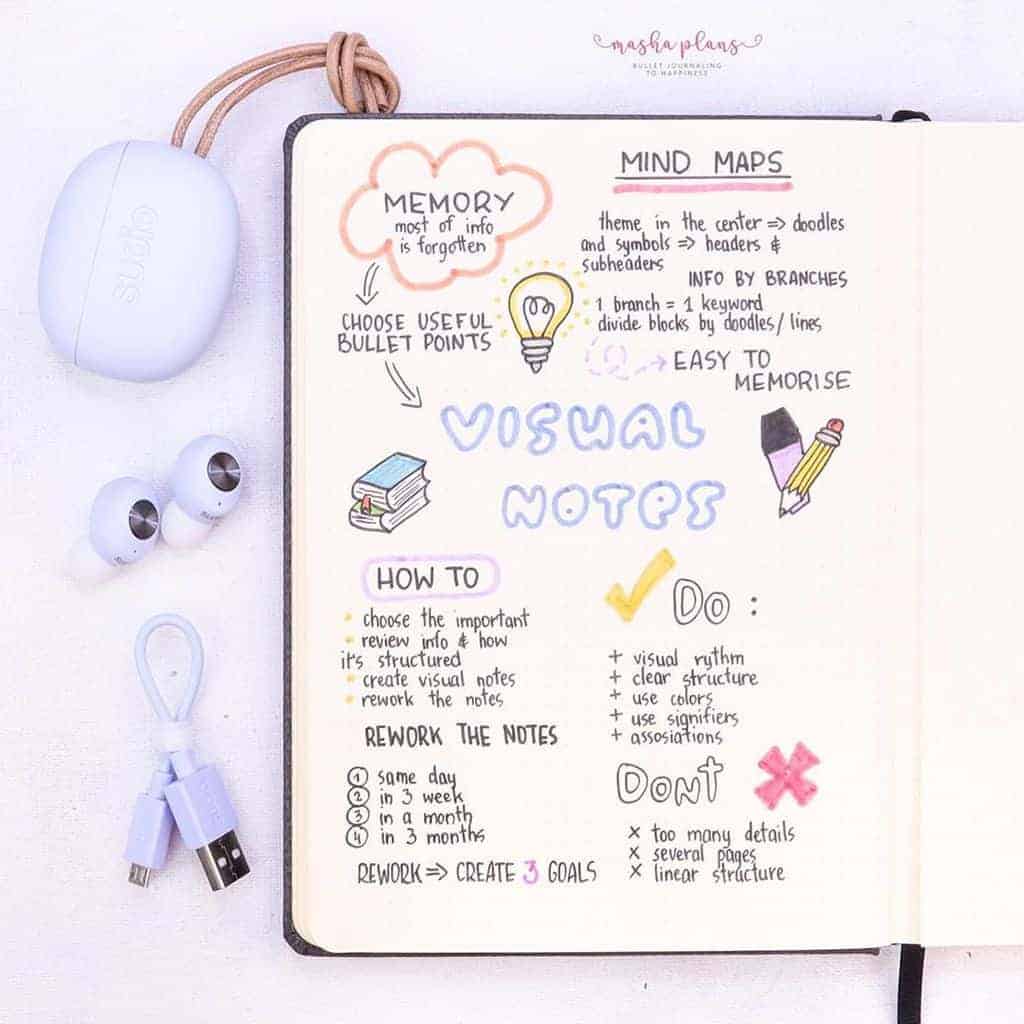 masha plans
BULLET JOURNALING
TO HAPPINESS
sudio
MEMORY
most of info
is forgotten
CHOOSE USEFUL
BULLET POINTS
MIND MAPS
theme in the center ⇒ doodles
and symbols ⇒ headers &
subheaders
INFO BY BRANCHES
1 branch = 1 keyword
divide blocks by doodles/lines
EASY TO
MEMORISE
VISUAL
NOTES
HOW TO
• choose the important
• review info & how
it's structured
• create visual notes
• rework the notes
REWORK THE NOTES
1 same day
2 in 3 week
3 in a month
4 in 3 months
REWORK ⇒ CREATE 3 GOALS
Do :
+ visual rythm
+ clear structure
+ use colors
+ use signifiers
+ assosiations
Dont
x too many details
x several pages
x linear structure